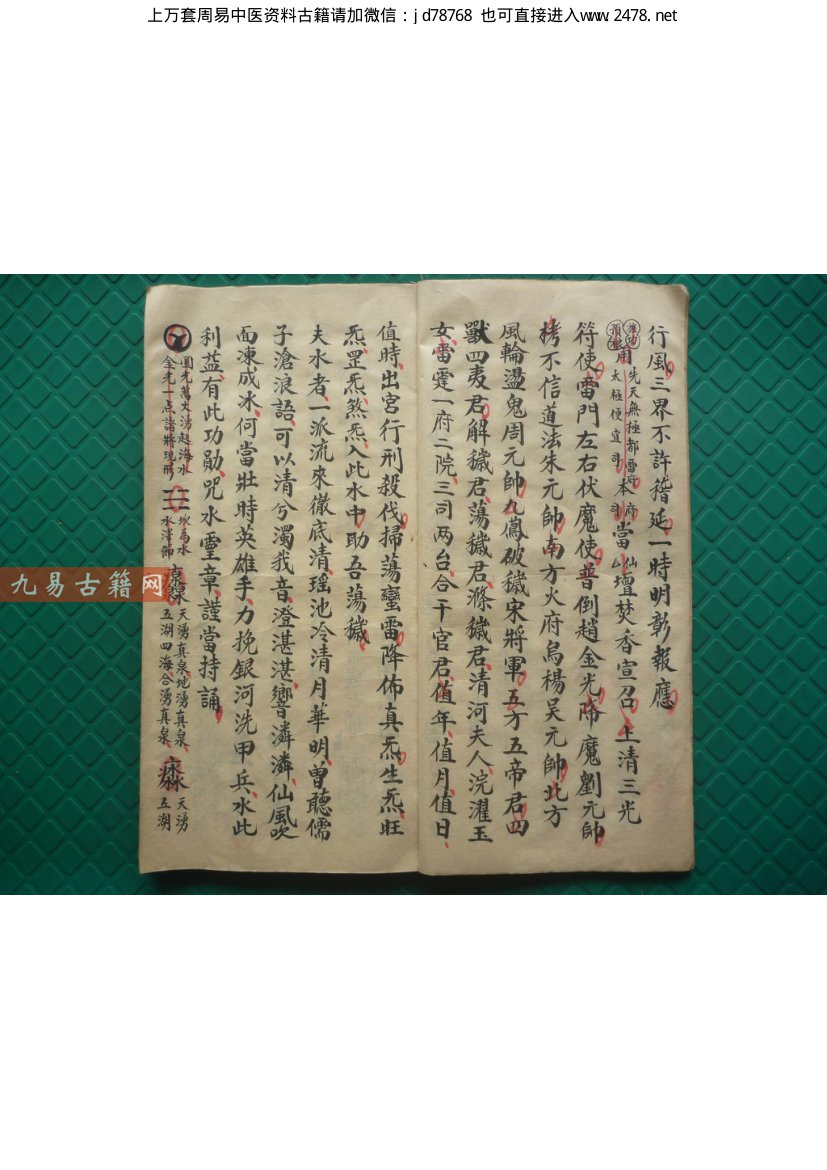 上万套周易中医资料古籍请加微信：jd78768 也可直接进入www.2478.net
行風三界不許稽延一時明彰報應
用先天無極都雷府本府太極便宜司司當仙山壇焚香宣召上清三光
符使雷門左右伏魔使普倒趙金光降魔劉元帥
栲不信道法朱元帥南方火府烏楊吴元帥北方
風輪盪鬼周元帥九鳳破穢宋將軍五方五帝君四
獸四夷君解穢君蕩穢君滌穢君清河夫人浣濯玉
女雷霆一府二院三司两台合干官君值年值月值日
值時出宮行刑殺伐掃蕩蠻雷降佈真炁生炁旺
炁罡炁煞炁入此水中助吾蕩穢
夫水者一派流來徹底清瑶池冷清月華明曾聽儒
子滄浪語可以清兮濁我音澄湛湛響潾潾仙風吹
面凍成冰何當壯時英雄手力挽銀河洗甲兵水此
利益有此功勛咒水靈章謹當持誦
圓光萬丈湧起海水
金光一点諸將現形
坎為水
水澤節
天湧真泉地湧真泉
五湖四海合湧真泉
天湧
五湖
九易古籍网